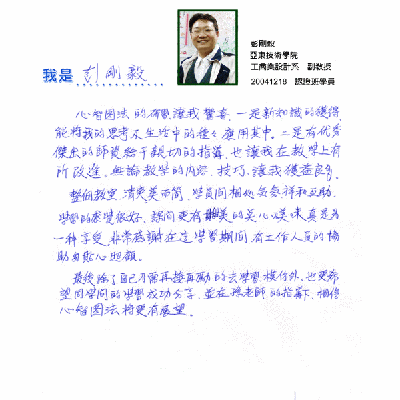 彭剛毅
亞東技術學院
工商業設計系 副教授
20041218 認證班學員
我是 彭剛毅
心智圖法的有夠讓我驚喜,一是新知識的獲得
能將我的思考及生活中的種種應用其中。二是有優秀
傑出的師資給予親切的指導,也讓我在教學上有
所改進。無論教學的內容、技巧,讓我獲益良多。
整個教室清爽美而簡,學員間相處知祥和互助,
學習的感覺很好。課間更有精美的茶化美味真是為
一種享受,非常感謝在這學習期間有工作人員的協
助與貼心照顧。
最後除了自己日需再接再勵的去學習模仿外,也更希
望同學間的學習成功分享,並在孫老師的指導下,相信
心智圖法將更有展望。